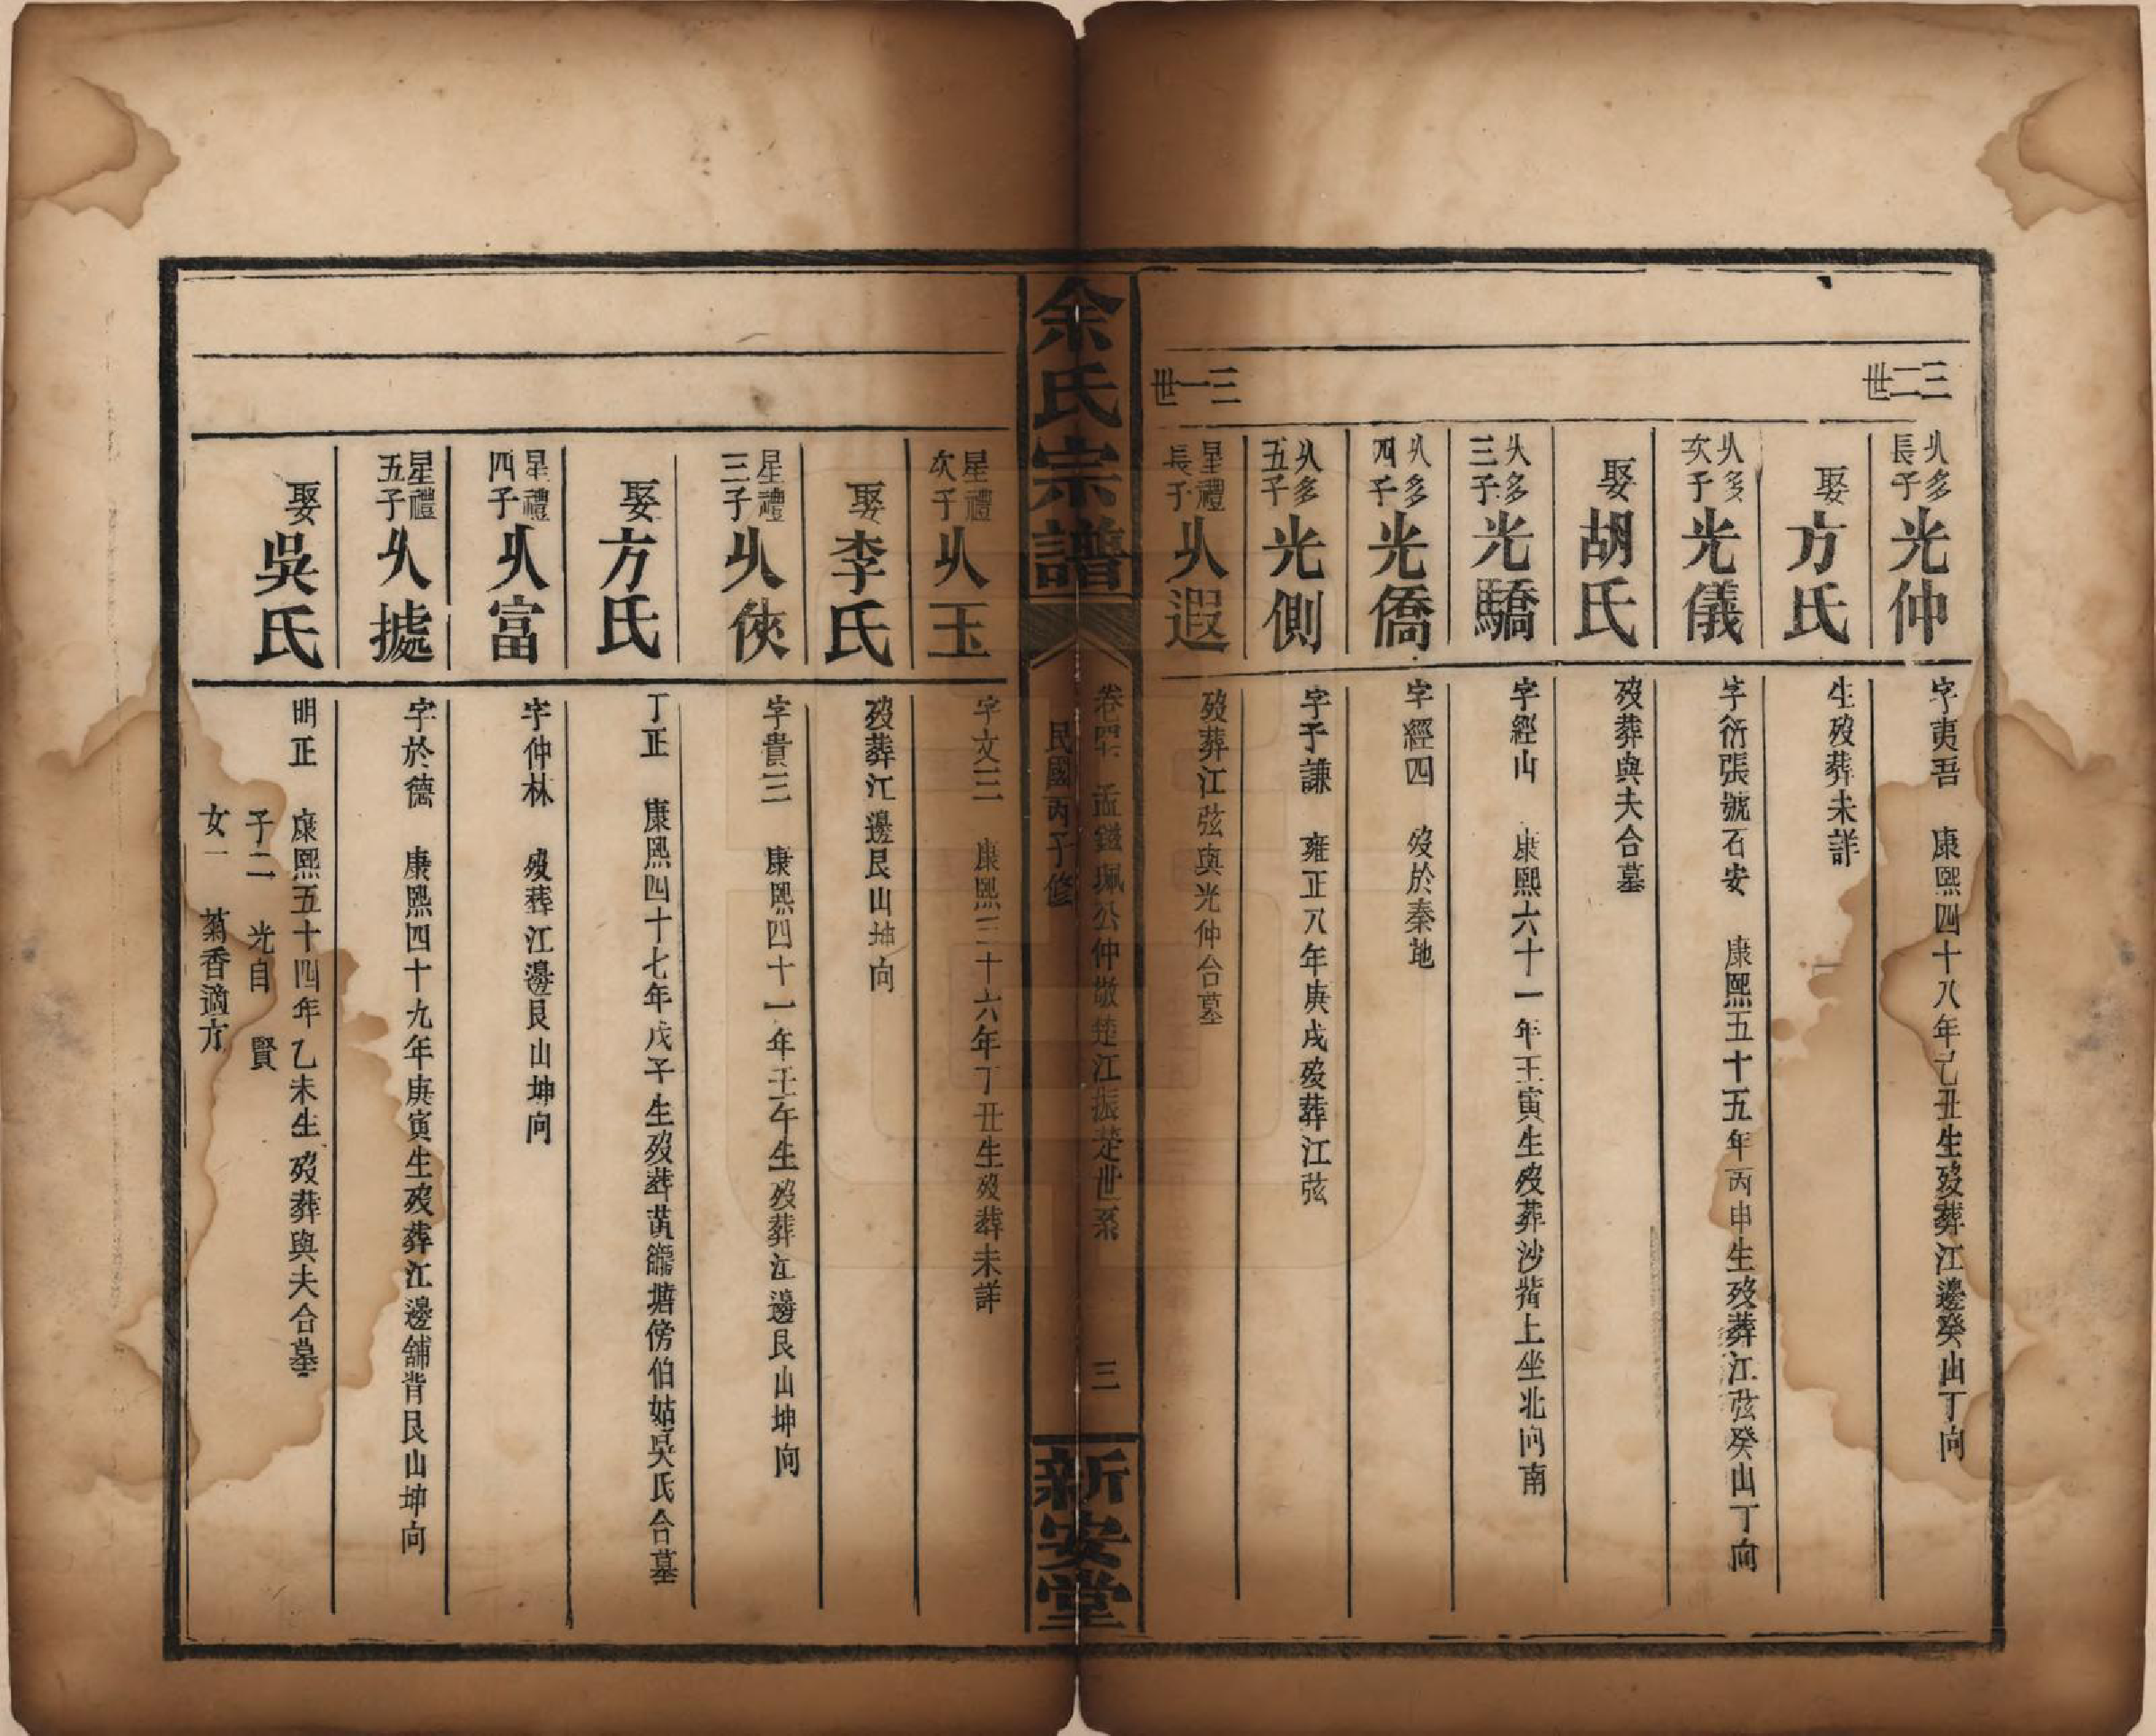 三二世
乆多長子光仲 字夷吾 康熙四十八年己丑生歿葬江邊癸山丁向
娶方氏 生歿葬未詳
乆多次子光儀 字衍張號石安 康熙五十五年丙申生歿葬江弦癸山丁向
娶胡氏 歿葬與夫合墓
乆多三子光驕 字經山 康熙六十一年壬寅生歿葬沙嘴上坐北向南
乆多四子光僑 字經四 歿於秦地
乆多五子光側 字子謙 雍正八年庚戌歿葬江弦
三一世
星禮長子乆遐 歿葬江弦與光仲合墓
余氏宗譜
卷 孟 珮公仲敬楚江振楚世系 三
民國丙子修
新安堂
星禮次子乆玉 字文三 康熙三十六年丁丑生歿葬未詳
娶李氏 歿葬江邊艮山坤向
星禮三子乆俠 字貴三 康熙四十一年壬午生歿葬江邊艮山坤向
娶方氏 丁正 康熙四十七年戊子生歿葬黃 塘傍伯姑吳氏合墓
星禮四子乆富 字仲林 歿葬江邊艮山坤向
星禮五子乆據 字於德 康熙四十九年庚寅生歿葬江邊舖背艮山坤向
娶吳氏 明正 康熙五十四年乙未生歿葬與夫合墓
子二 光自 賢
女一 菊香適方